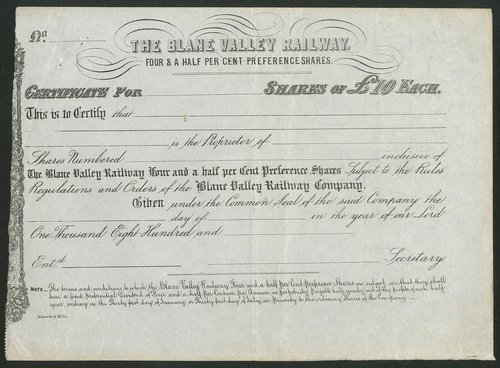 No
THE BLANE VALLEY RAILWAY.
FOUR & A HALF PER CENT PREFERENCE SHARES.
CERTIFICATE FOR SHARES OF £10 EACH.
This is to Certify that
is the Proprietor of
Shares Numbered inclusive of
The Blane Valley Railway Four and a half per Cent Preference Shares Subject to the Rules
Regulations and Orders of the Blane Valley Railway Company.
Given under the Common Seal of the said Company the
day of in the year of our Lord
One Thousand Eight Hundred and
Ent.d Secretary
NOTE. The terms and conditions to which the Blane Valley Railway Four and a half per Cent Preference Shares are subject, are that they shall
bear a fixed preferential Dividend of Four and a half per Centum per Annum in perpetuity payable half yearly out of the profits of each half
year, ending on the Thirty first day of January, or Thirty first day of July, in priority to the ordinary Shares of the Company.